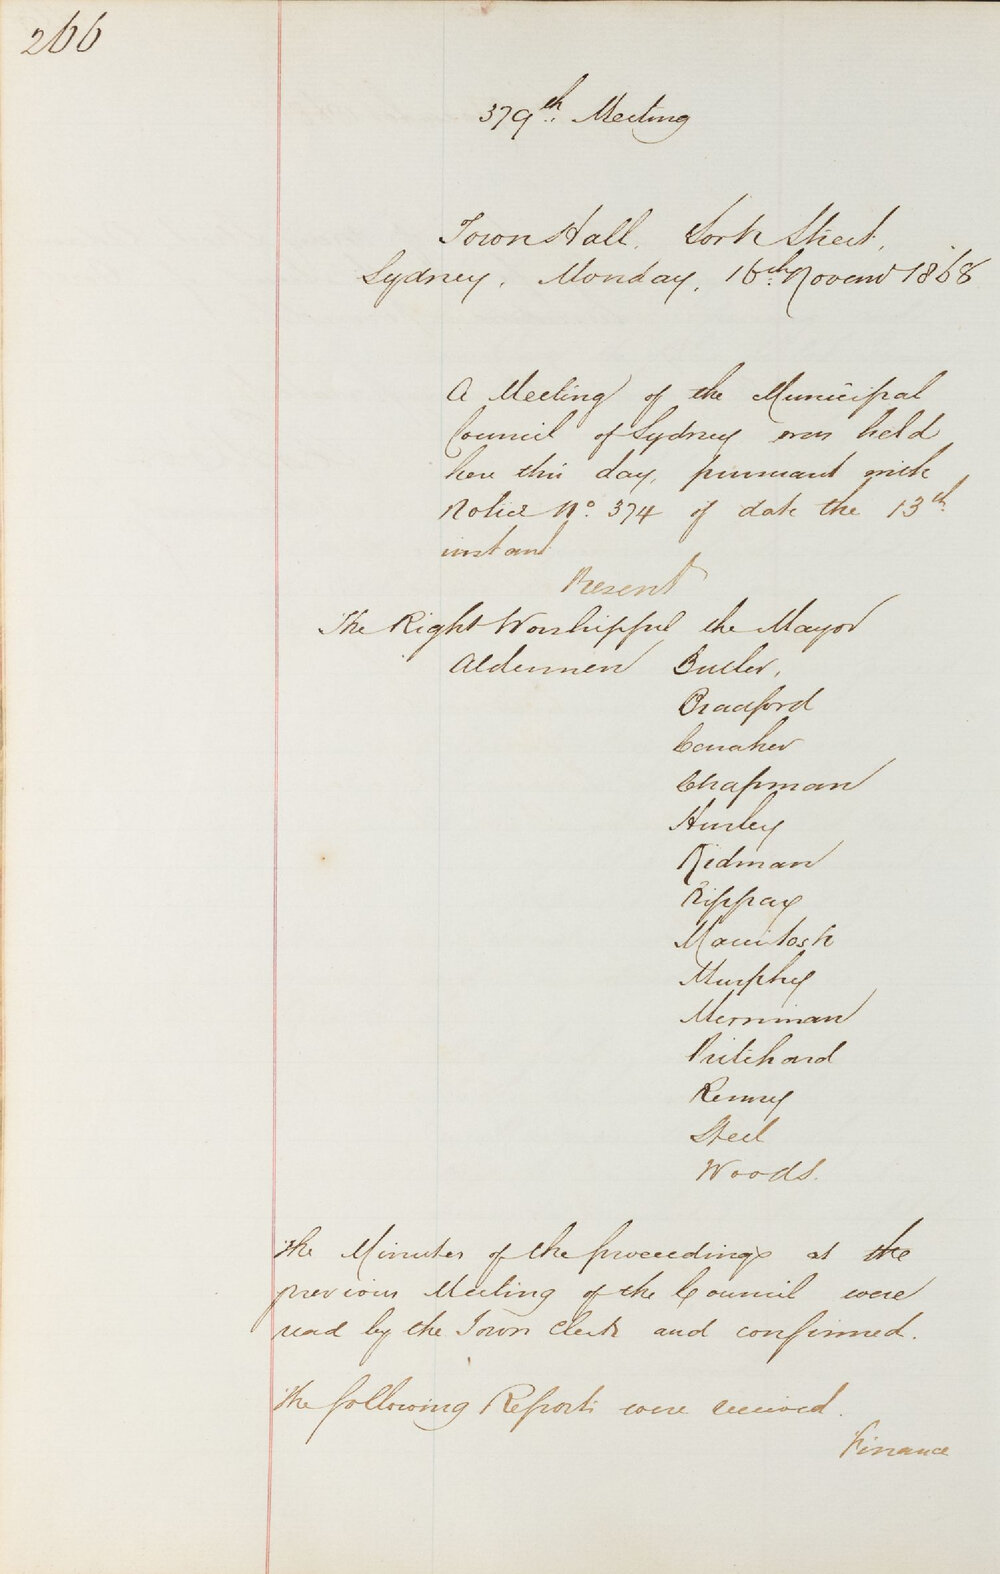 266
379th. Meeting
Town Hall, York Street,
Sydney, Monday, 16th. Novemr 1868
A Meeting of the Municipal
Council of Sydney was held
here this day, pursuant with
Notice No. 374 of date the 13th.
instant
Present
The Right Worshipful the Mayor
Aldermen Butler,
Bradford
Caraher
Chapman
Hurley
Kidman
Kippax
Macintosh
Murphy
Merriman
Pritchard
Renny
Steel
Woods.
The Minutes of the proceedings at the
previous Meeting of the Council were
read by the Town Clerk and confirmed.
The following Reports were received.
Finance